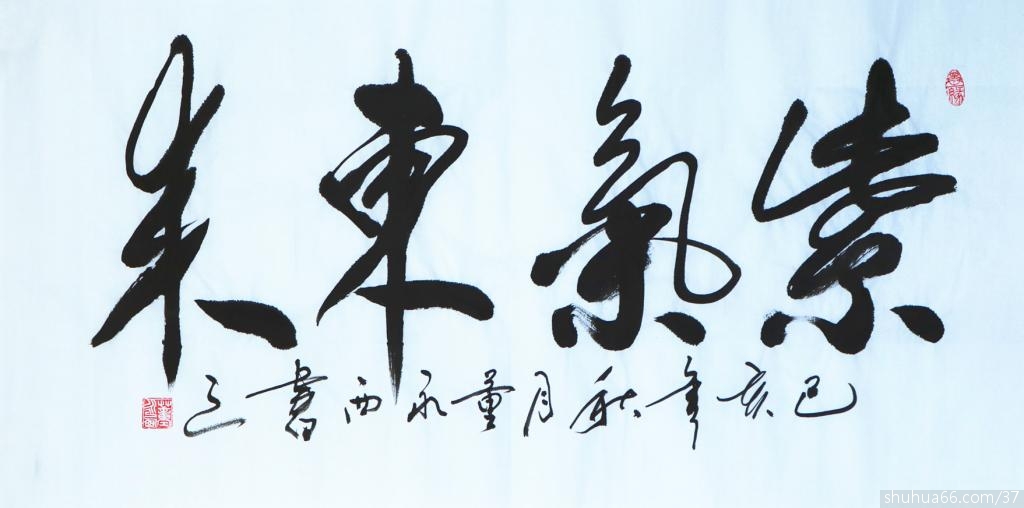 紫氣東来
己亥年秋月董永西書之
shuhua66.com/37